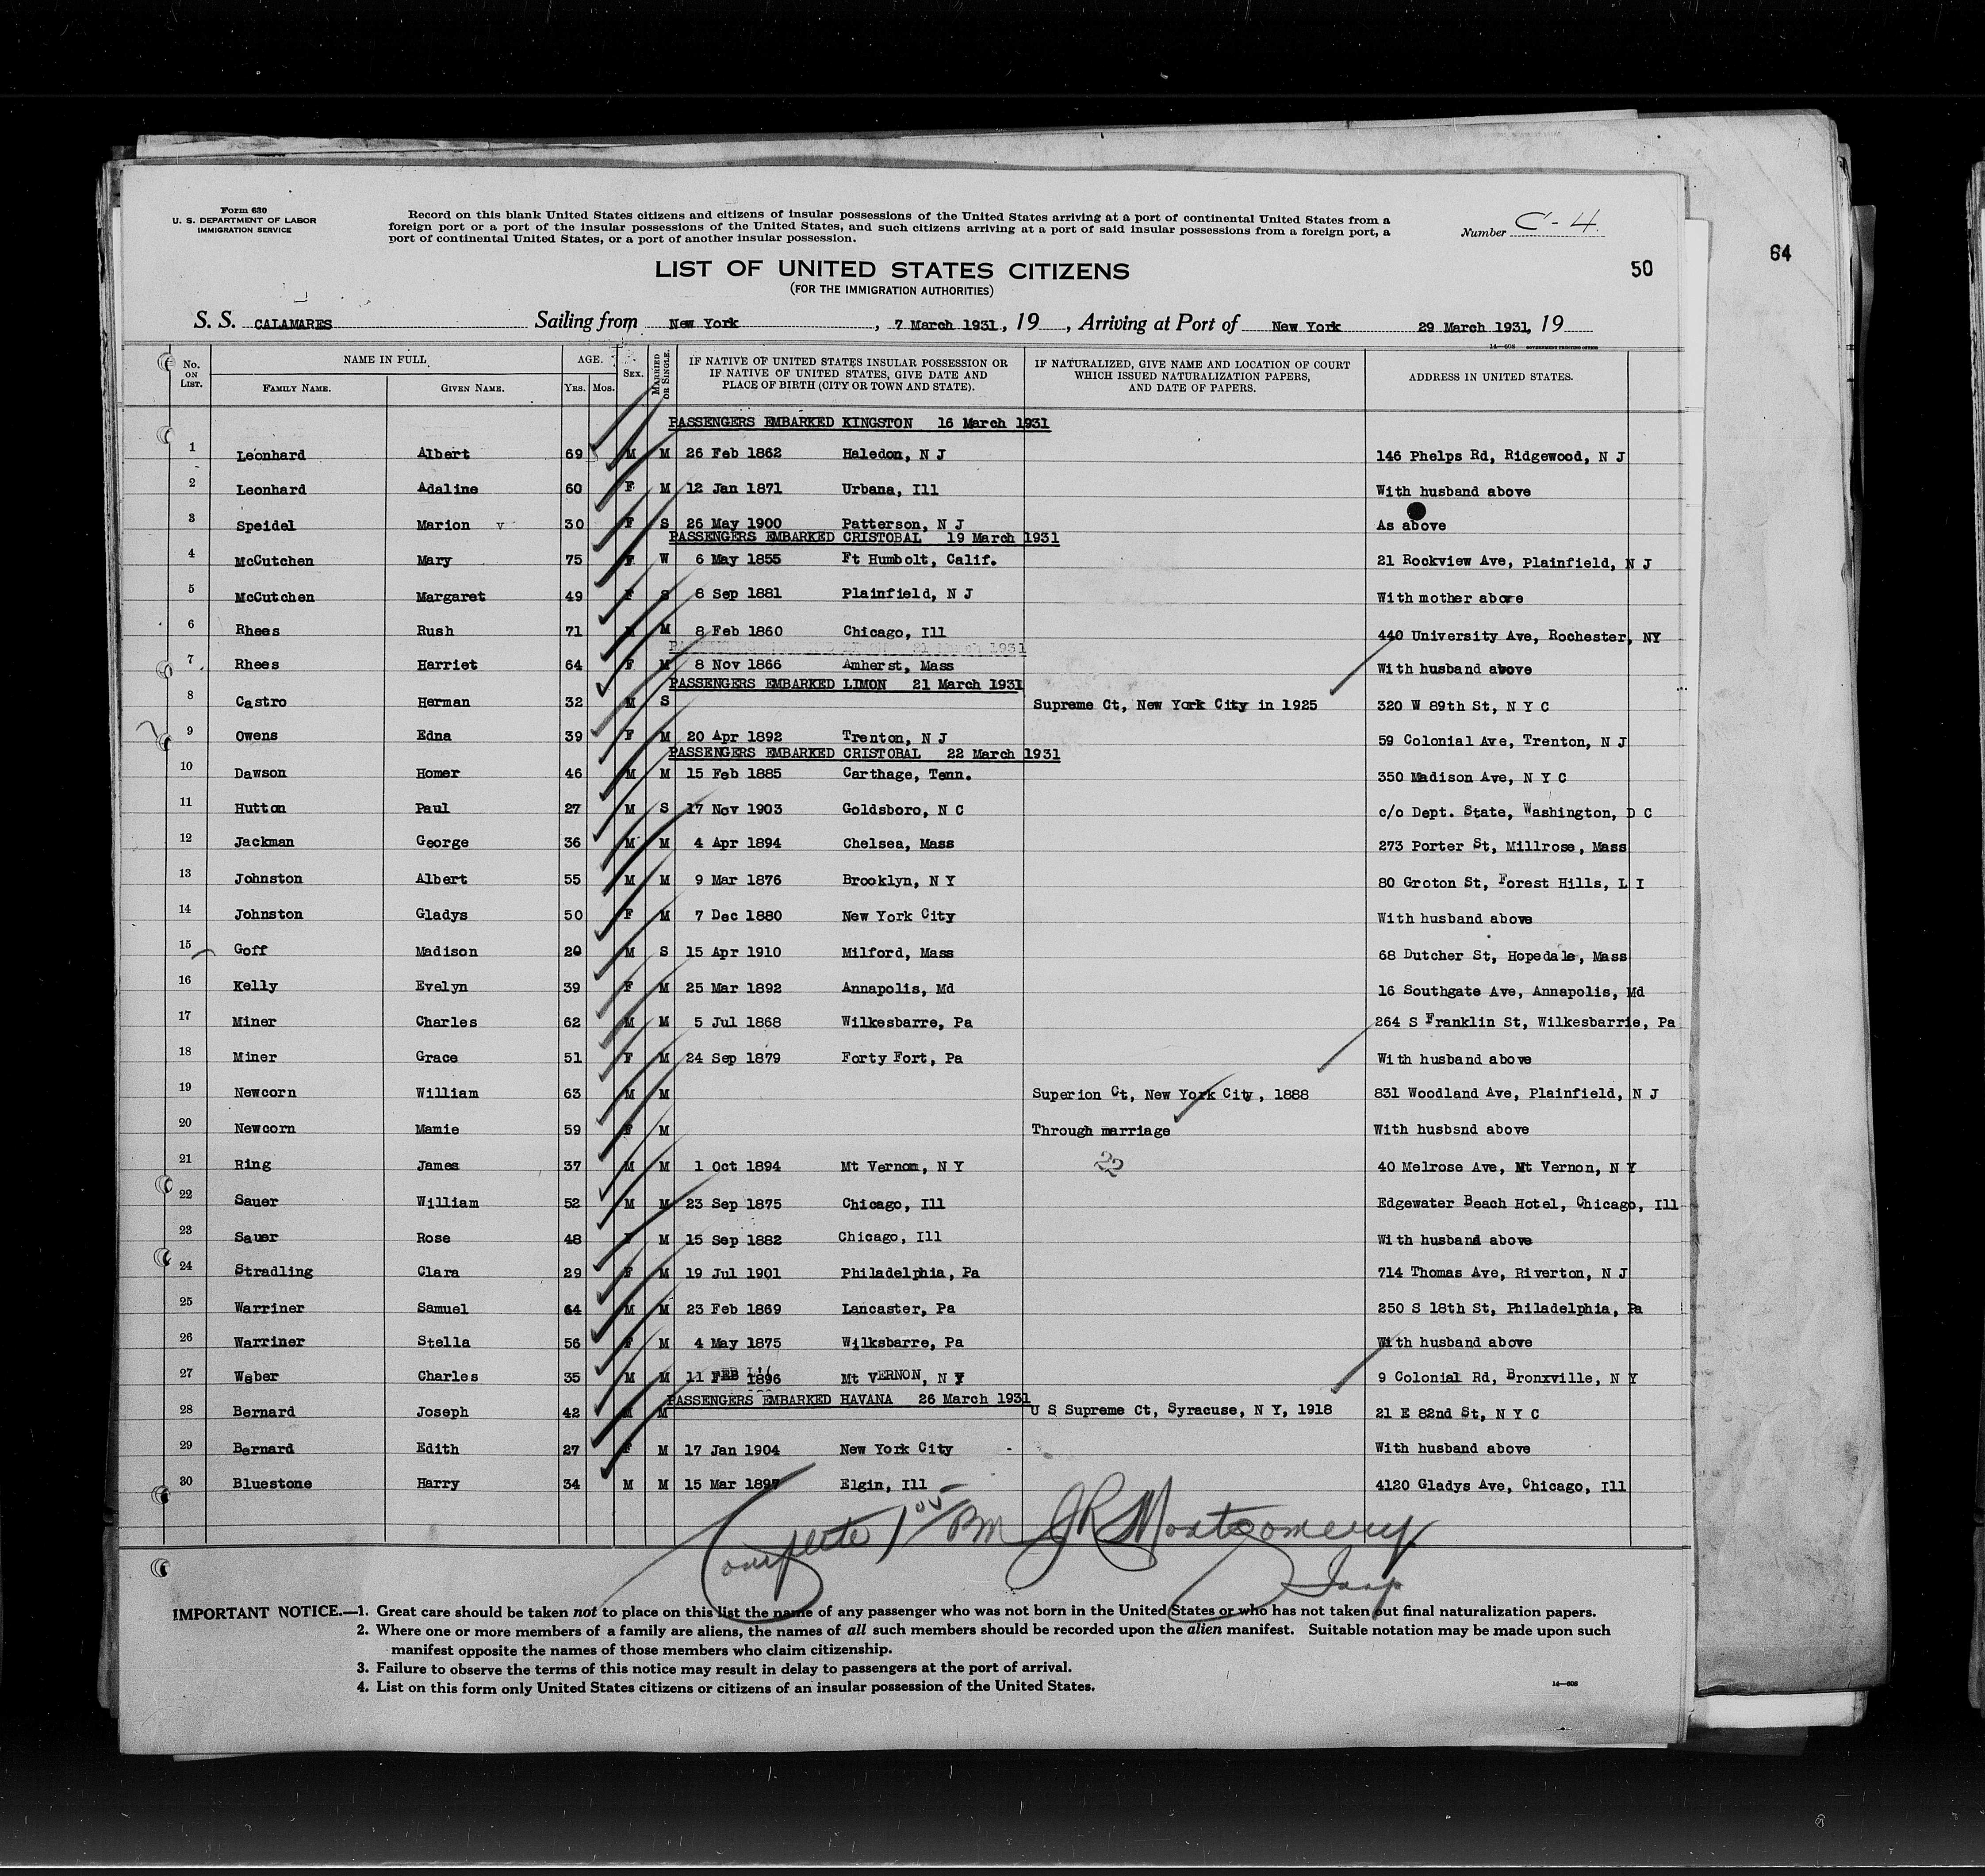 Form 630
U. S. DEPARTMENT OF LABOR
IMMIGRATION SERVICE
Record on this blank United States citizens and citizens of insular possessions of the United States arriving at a port of continental United States from a
foreign port or a port of the insular possessions of the United States, and such citizens arriving at a port of said insular possessions from a foreign port, a
port of continental United States, or a port of another insular possession.
Number C-4
64
50
LIST OF UNITED STATES CITIZENS
(FOR THE IMMIGRATION AUTHORITIES)
S. S. CALAMARES Sailing from New York, 7 March 1931, 19 , Arriving at Port of New York 29 March 1931, 19
14—608 GOVERNMENT PRINTING OFFICE
No. ON LIST. NAME IN FULL. FAMILY NAME. GIVEN NAME. AGE. YRS. MOS. SEX. MARRIED OR SINGLE. IF NATIVE OF UNITED STATES INSULAR POSSESSION OR IF NATIVE OF UNITED STATES, GIVE DATE AND PLACE OF BIRTH (CITY OR TOWN AND STATE). IF NATURALIZED, GIVE NAME AND LOCATION OF COURT WHICH ISSUED NATURALIZATION PAPERS, AND DATE OF PAPERS. ADDRESS IN UNITED STATES.
PASSENGERS EMBARKED KINGSTON 16 March 1931
1 Leonhard Albert 69 M M 26 Feb 1862 Haledon, N J 146 Phelps Rd, Ridgewood, N J
2 Leonhard Adaline 60 F M 12 Jan 1871 Urbana, Ill With husband above
3 Speidel Marion v 30 F S 26 May 1900 Patterson, N J As above
PASSENGERS EMBARKED CRISTOBAL 19 March 1931
4 McCutchen Mary 75 F W 6 May 1855 Ft Humbolt, Calif. 21 Rockview Ave, Plainfield, N J
5 McCutchen Margaret 49 F S 8 Sep 1881 Plainfield, N J With mother above
6 Rhees Rush 71 M M 8 Feb 1860 Chicago, Ill 440 University Ave, Rochester, NY
21 March 1931
7 Rhees Harriet 64 F M 8 Nov 1866 Amherst, Mass With husband above
PASSENGERS EMBARKED LIMON 21 March 1931
8 Castro Herman 32 M S Supreme Ct, New York City in 1925 320 W 89th St, N Y C
9 Owens Edna 39 F M 20 Apr 1892 Trenton, N J 59 Colonial Ave, Trenton, N J
PASSENGERS EMBARKED CRISTOBAL 22 March 1931
10 Dawson Homer 46 M M 15 Feb 1885 Carthage, Tenn. 350 Madison Ave, N Y C
11 Hutton Paul 27 M S 17 Nov 1903 Goldsboro, N C c/o Dept. State, Washington, D C
12 Jackman George 36 M M 4 Apr 1894 Chelsea, Mass 273 Porter St, Millrose, Mass
13 Johnston Albert 55 M M 9 Mar 1876 Brooklyn, N Y 80 Groton St, Forest Hills, L I
14 Johnston Gladys 50 F M 7 Dec 1880 New York City With husband above
15 Goff Madison 20 M S 15 Apr 1910 Milford, Mass 68 Dutcher St, Hopedale, Mass
16 Kelly Evelyn 39 F M 25 Mar 1892 Annapolis, Md 16 Southgate Ave, Annapolis, Md
17 Miner Charles 62 M M 5 Jul 1868 Wilkesbarre, Pa 264 S Franklin St, Wilkesbarrie, Pa
18 Miner Grace 51 F M 24 Sep 1879 Forty Fort, Pa With husband above
19 Newcorn William 63 M M Superion Ct, New York City, 1888 831 Woodland Ave, Plainfield, N J
20 Newcorn Mamie 59 F M Through marriage With husbsnd above
21 Ring James 37 M M 1 Oct 1894 Mt Vernon, N Y 22 40 Melrose Ave, Mt Vernon, N Y
22 Sauer William 52 M M 23 Sep 1875 Chicago, Ill Edgewater Beach Hotel, Chicago, Ill
23 Sauer Rose 48 F M 15 Sep 1882 Chicago, Ill With husband above
24 Stradling Clara 29 F M 19 Jul 1901 Philadelphia, Pa 714 Thomas Ave, Riverton, N J
25 Warriner Samuel 64 M M 23 Feb 1869 Lancaster, Pa 250 S 18th St, Philadelphia, Pa
26 Warriner Stella 56 F M 4 May 1875 Wilksbarre, Pa With husband above
27 Weber Charles 35 M M 11 FEB 1896 Mt VERNON, N Y 9 Colonial Rd, Bronxville, N Y
PASSENGERS EMBARKED HAVANA 26 March 1931
28 Bernard Joseph 42 M M U S Supreme Ct, Syracuse, N Y, 1918 21 E 82nd St, N Y C
29 Bernard Edith 27 F M 17 Jan 1904 New York City - With husband above
30 Bluestone Harry 34 M M 15 Mar 1897 Elgin, Ill 4120 Gladys Ave, Chicago, Ill
Complete 1 05 PM JR Montgomery
Insp
IMPORTANT NOTICE.—1. Great care should be taken not to place on this list the name of any passenger who was not born in the United States or who has not taken out final naturalization papers.
2. Where one or more members of a family are aliens, the names of all such members should be recorded upon the alien manifest. Suitable notation may be made upon such
manifest opposite the names of those members who claim citizenship.
3. Failure to observe the terms of this notice may result in delay to passengers at the port of arrival.
4. List on this form only United States citizens or citizens of an insular possession of the United States.
14—608